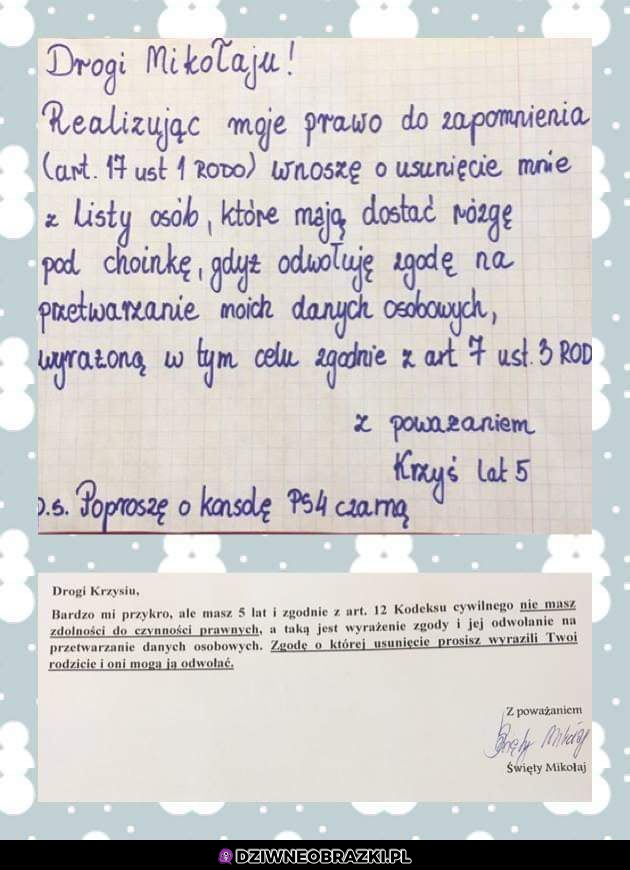 Drogi Mikołaju!
Realizując moje prawo do zapomnienia
(art. 17 ust 1 RODO) wnoszę o usunięcie mnie
z listy osób, które mają dostać rózgę
pod choinkę, gdyż odwołuję zgodę na
przetwarzanie moich danych osobowych,
wyrażoną w tym celu zgodnie z art 7 ust. 3 ROD
z poważaniem
Krzyś lat 5
p.s. Poproszę o konsolę PS4 czarną
Drogi Krzysiu,
Bardzo mi przykro, ale masz 5 lat i zgodnie z art. 12 Kodeksu cywilnego nie masz
zdolności do czynności prawnych, a taką jest wyrażenie zgody i jej odwołanie na
przetwarzanie danych osobowych. Zgodę o której usunięcie prosisz wyrazili Twoi
rodzicie i oni mogą ją odwołać.
Z poważaniem
Święty Mikołaj
Święty Mikołaj
DZIWNEOBRAZKI.PL